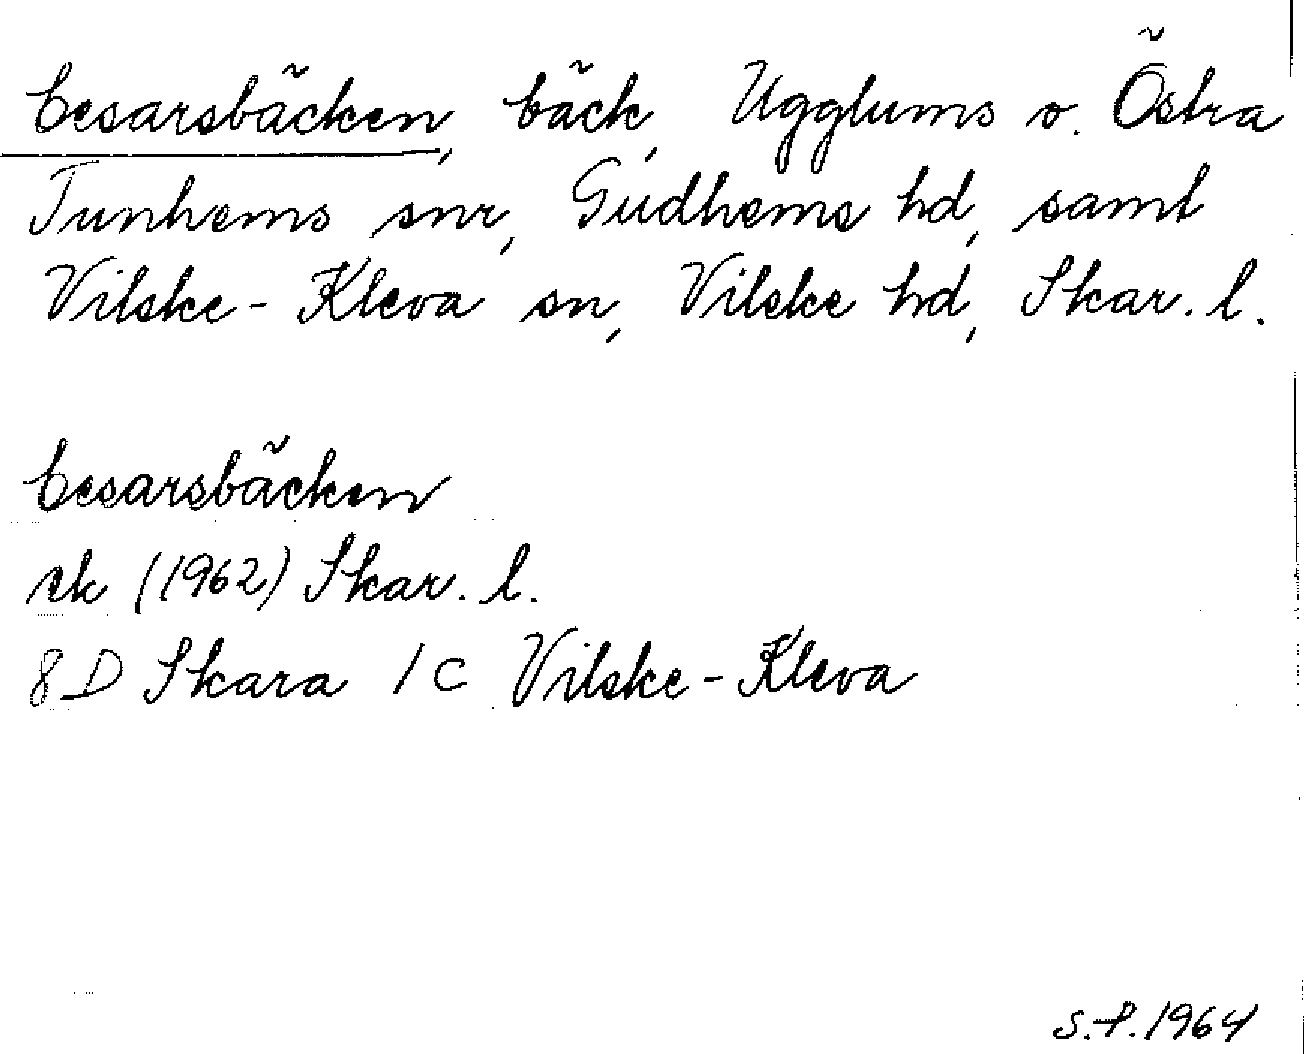 Cesarsbäcken, bäck, Ugglums o. Östra
Tunhems snr, Gudhems hd, samt
Vilske-Kleva sn, Vilske hd, Skar. l.
Cesarsbäcken
rk (1962) Skar. l.
8D Skara 1 c Vilske-Kleva
S.P. 1964